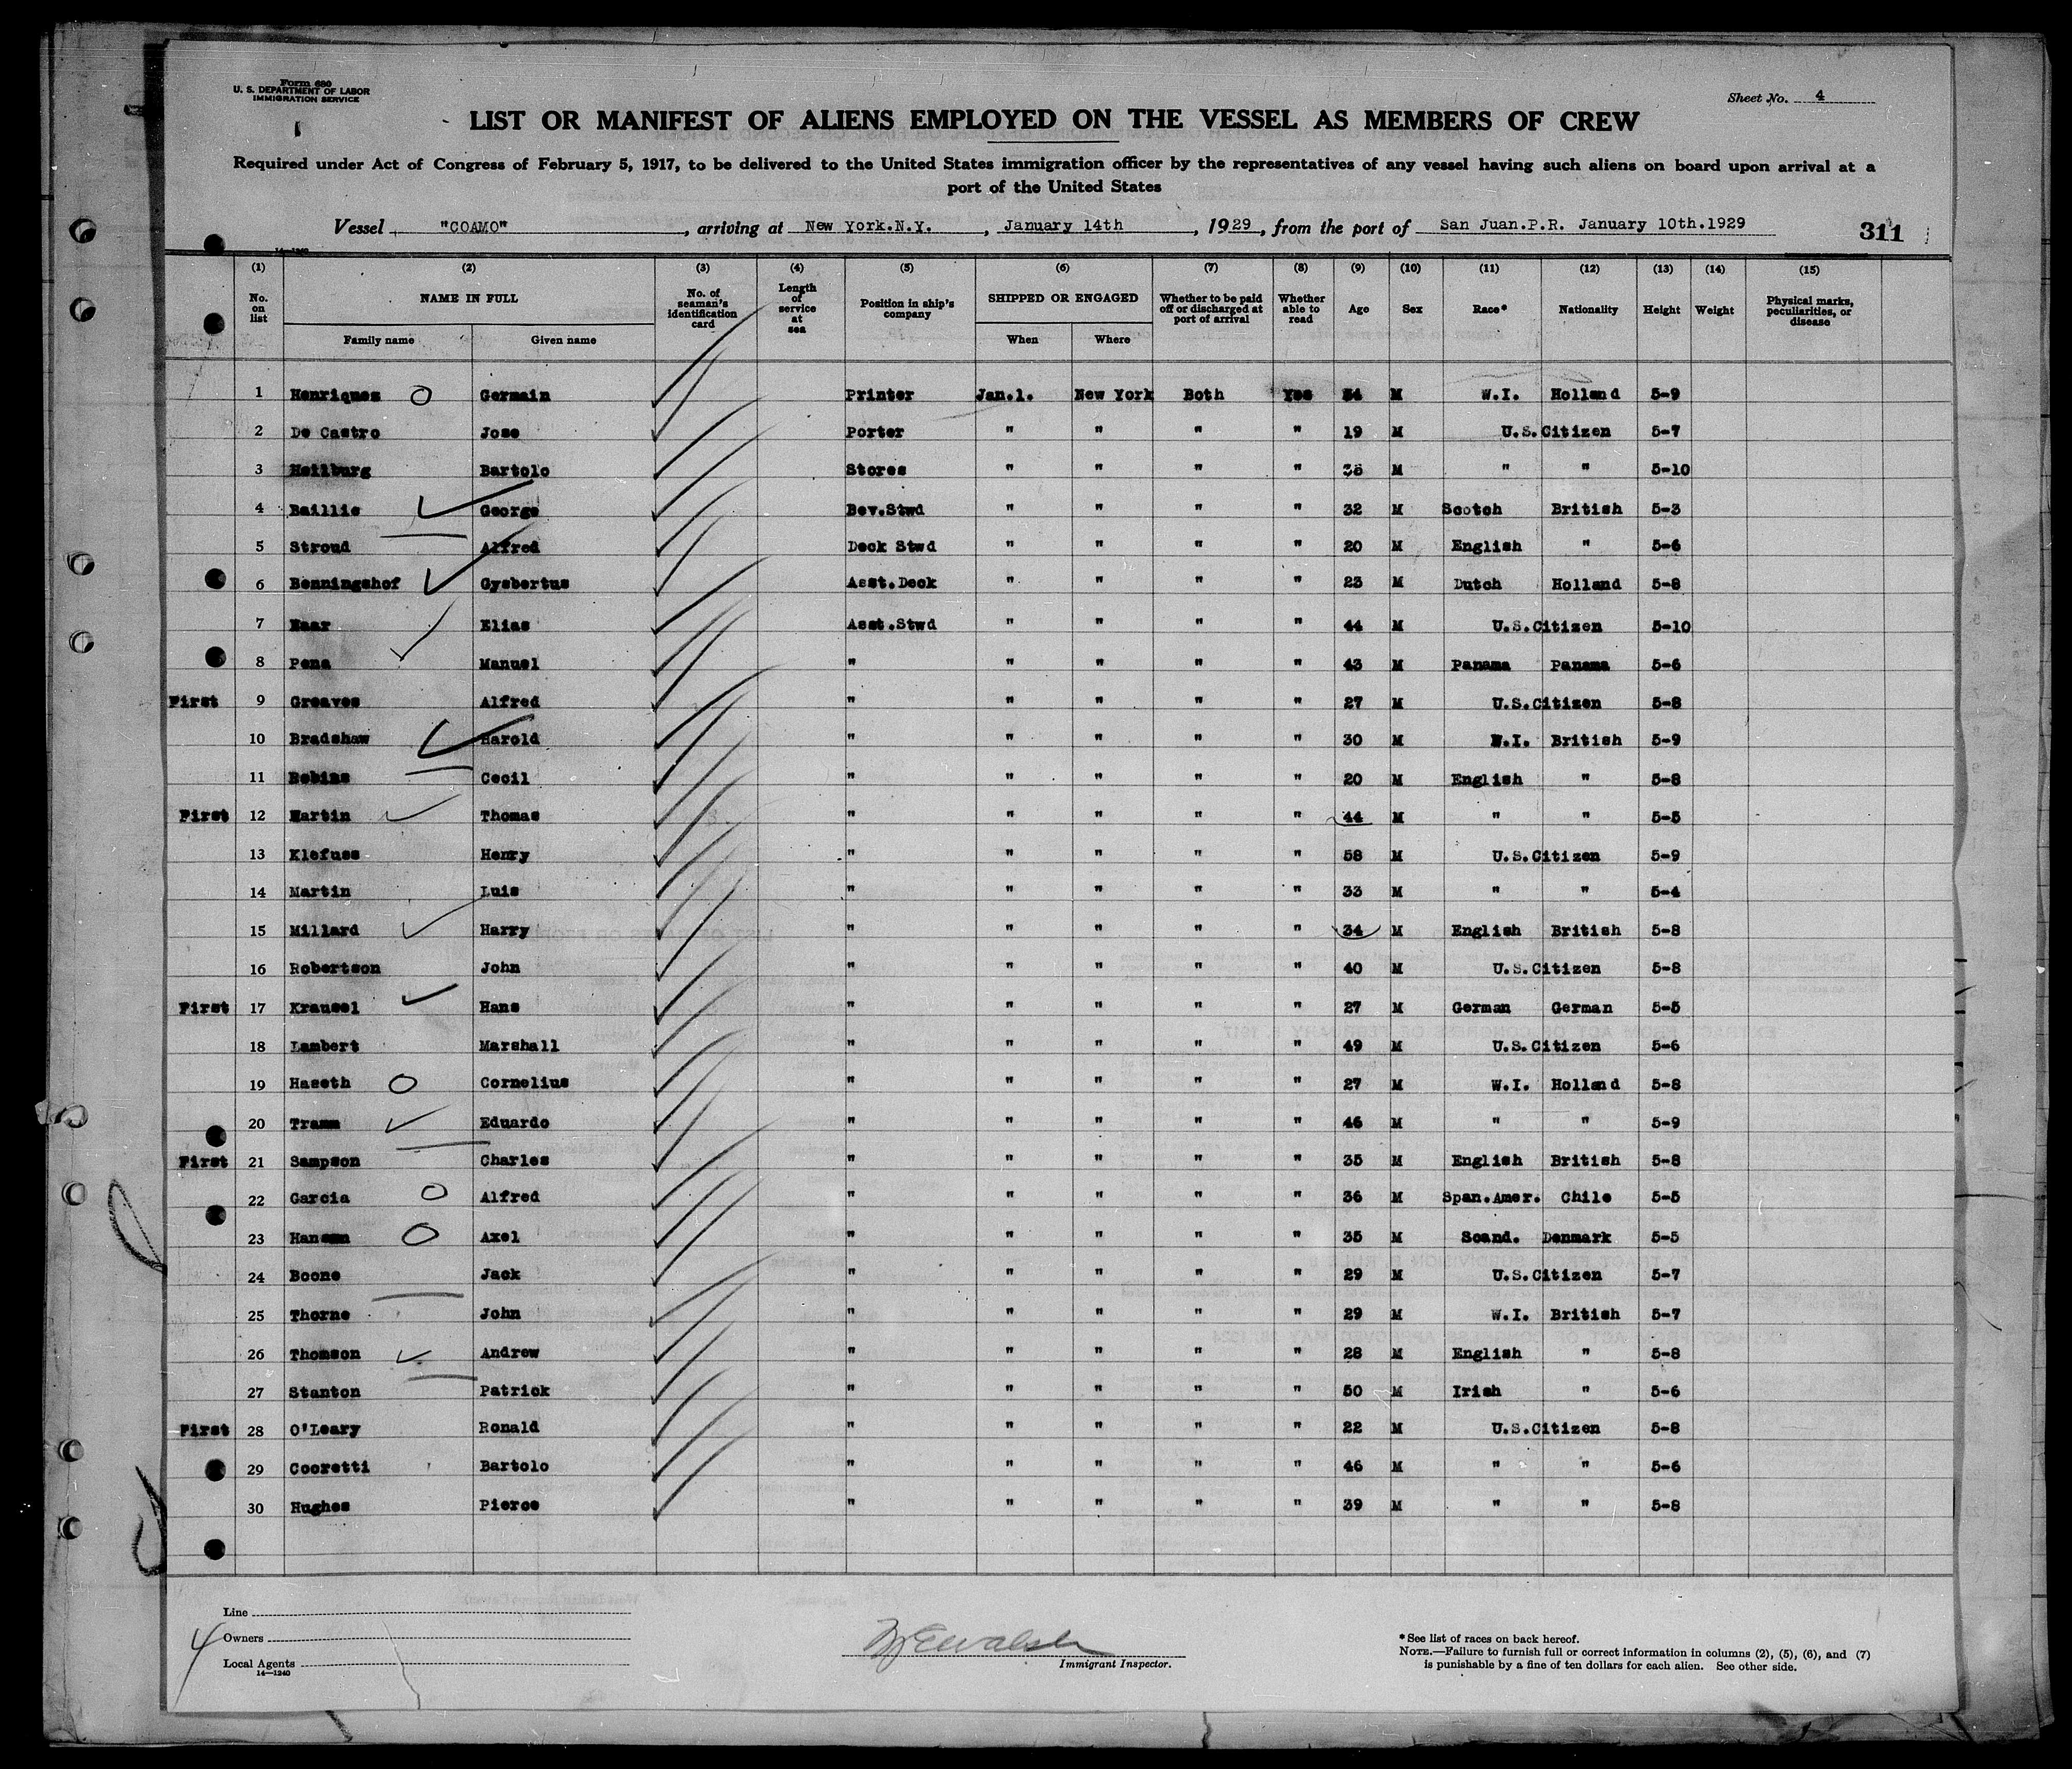 Form 680
U. S. DEPARTMENT OF LABOR
IMMIGRATION SERVICE
Sheet No. 4
LIST OR MANIFEST OF ALIENS EMPLOYED ON THE VESSEL AS MEMBERS OF CREW
Required under Act of Congress of February 5, 1917, to be delivered to the United States immigration officer by the representatives of any vessel having such aliens on board upon arrival at a
port of the United States
Vessel "COAMO", arriving at New York.N.Y., January 14th, 1929, from the port of San Juan.P.R. January 10th.1929 311
14-1240
(1) (2) (3) (4) (5) (6) (7) (8) (9) (10) (11) (12) (13) (14) (15)
No. on list NAME IN FULL No. of seaman's identification card Length of service at sea Position in ship's company SHIPPED OR ENGAGED Whether to be paid off or discharged at port of arrival Whether able to read Age Sex Race* Nationality Height Weight Physical marks, peculiarities, or disease
Family name Given name When Where
1 Henriques Germain Printer Jan.1. New York Both Yes 34 M W.I. Holland 5-9
2 De Castro Jose Porter " " " " 19 M U.S.Citizen 5-7
3 Heilburg Bartolo Stores " " " " M " " 5-10
4 Baillie George Bev.Stwd " " " " 32 M Scotch British 5-3
5 Stroud Alfred Deck Stwd " " " " 20 M English " 5-6
6 Benningshof Gysbertus Asst.Deck " " " " 23 M Dutch Holland 5-8
7 Elias Asst.Stwd " " " " 44 M U.S.Citizen 5-10
8 Pena Manuel " " " " " 43 M Panama Panama 5-6
First 9 Greaves Alfred " " " " " 27 M U.S.Citizen 5-8
10 Bradshaw Harold " " " " " 30 M W.I. British 5-9
11 Cecil " " " " " 20 M English " 5-8
First 12 Martin Thomas " " " " " 44 M " " 5-5
13 Klefuss Henry " " " " " 58 M U.S.Citizen 5-9
14 Martin Luis " " " " " 33 M " " 5-4
15 Millard Harry " " " " " 34 M English British 5-8
16 Robertson John " " " " " 40 M U.S.Citizen 5-8
First 17 Krausel Hans " " " " " 27 M German German 5-5
18 Lambert Marshall " " " " " 49 M U.S.Citizen 5-6
19 Haseth Cornelius " " " " " 27 M W.I. Holland 5-8
20 Tramm Eduardo " " " " " 46 M " " 5-9
First 21 Sampson Charles " " " " " 35 M English British 5-8
22 Garcia Alfred " " " " " 36 M Span.Amer. Chile 5-5
23 Axel " " " " " 35 M Scand. Denmark 5-5
24 Boone Jack " " " " " 29 M U.S.Citizen 5-7
25 Thorne John " " " " " 29 M W.I. British 5-7
26 Thomson Andrew " " " " " 28 M English " 5-8
27 Stanton Patrick " " " " " 50 M Irish " 5-6
First 28 O'Leary Ronald " " " " " 22 M U.S.Citizen 5-8
29 Cooretti Bartolo " " " " " 46 M " " 5-6
30 Hughes Pierce " " " " " 39 M " " 5-8
Line
4 Owners
Local Agents
14—1240
Walsh
Immigrant Inspector.
* See list of races on back hereof.
NOTE.—Failure to furnish full or correct information in columns (2), (5), (6), and (7)
is punishable by a fine of ten dollars for each alien. See other side.